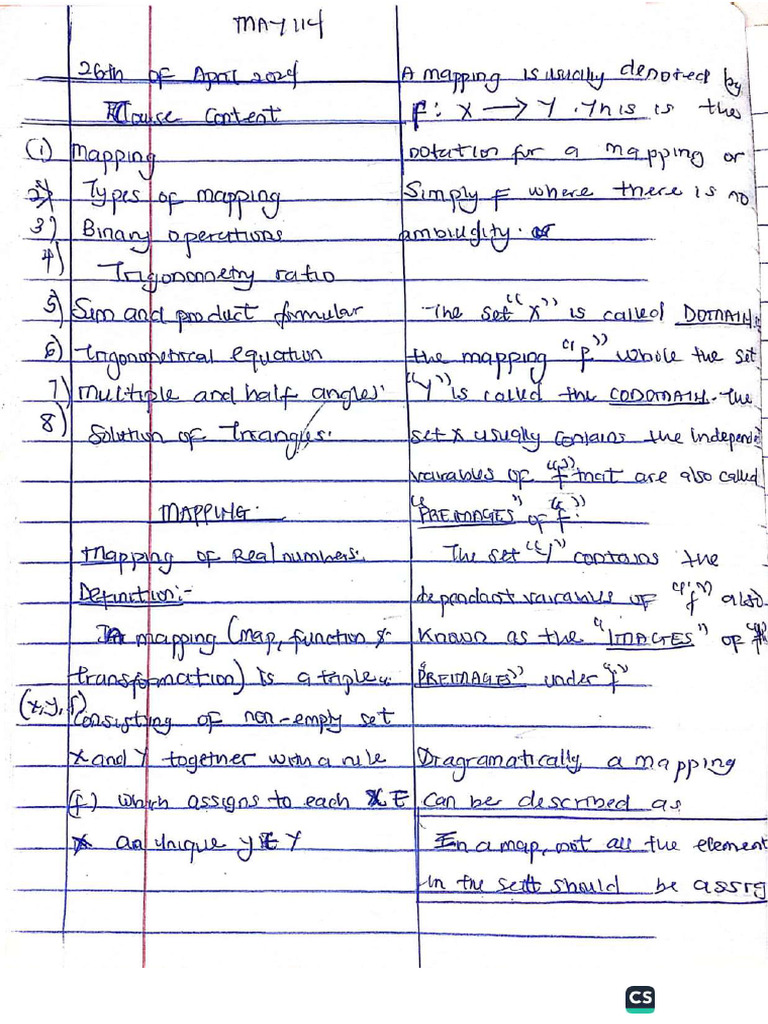 MAY 114
26th of April 2024
Couse Content
(1) Mapping
2) Types of mapping
3) Binary operations
4) Trigonometry ratio
5) Sum and product formular
6) Trigonometrical equation
7) Multiple and half angles.
8) Solution of Triangles.
MAPPING.
Mapping of Real numbers.
Definition:-
A mapping (map, function &
transformation) is a triple
(x, y, f) consisting of non-empty set
X and Y together with a rule
(f) which assigns to each X E
X an unique y E Y
A mapping is usually denoted by
f: X → Y. This is the
notation for a mapping or
Simply F where there is no
ambiugity.
The set "X" is called DOMAIN.
the mapping "f" while the set
"Y" is called the CODOMAIN. The
set X usually contains the independe
variables of "f" that are also called
"PREIMAGES" of "f".
The set "Y" contains the
dependant variables of "f" also
Known as the "IMAGES" of the
"PREIMAGES" under "f"
Diagramatically, a mapping
can be described as
In a map, not all the element
in the set should be assig
CS